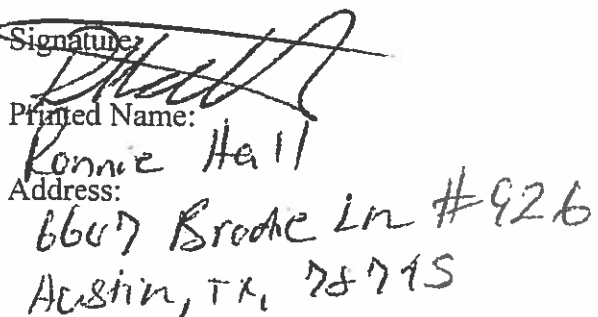 Signature:
Printed Name:
Ronnie Hall
Address:
6607 Brodie Ln #926
Austin, TX, 78745